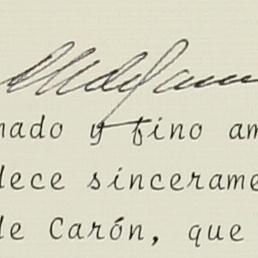 nado y fino am
dece sincerame
de Carón, que